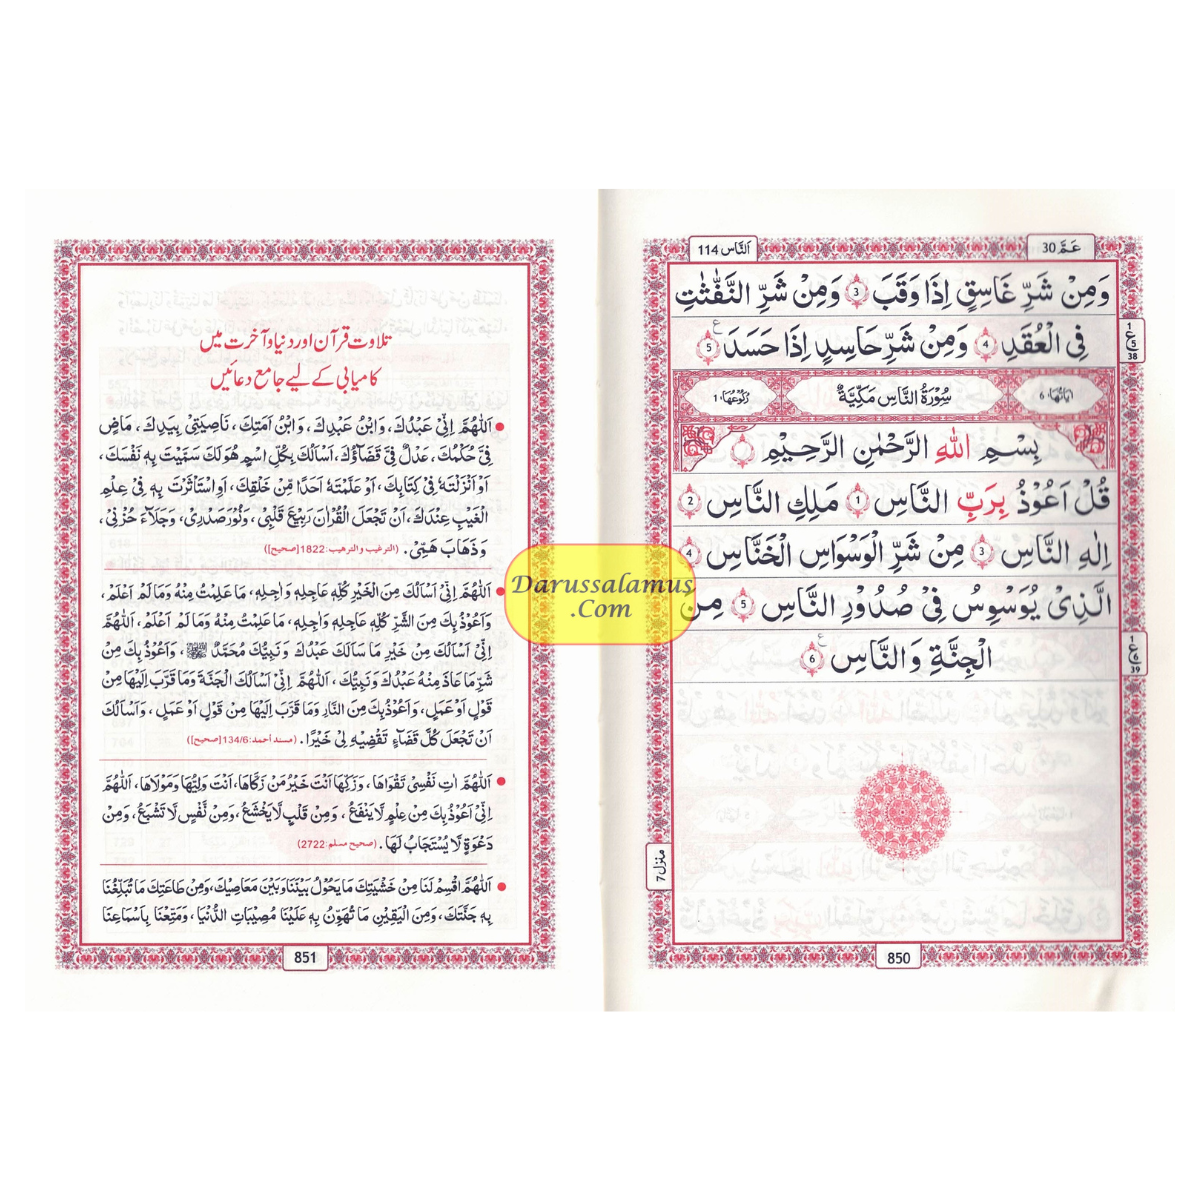 اَلنَّاس 114
عَـمَّ 30
وَمِنْ شَرِّ غَاسِقٍ اِذَا وَقَبَ 3 وَمِنْ شَرِّ النَّفّٰثٰتِ
فِى الْعُقَدِ 4 وَمِنْ شَرِّ حَاسِدٍ اِذَا حَسَدَ 5
اٰيَاتُهَا، 6 سُوْرَةُ النَّاس مَكِّيَّةٌ رُكُوْعُهَا، 1
بِسْمِ اللّٰهِ الرَّحْمٰنِ الرَّحِيْمِ
قُلْ اَعُوْذُ بِرَبِّ النَّاسِ 1 مَلِكِ النَّاسِ 2
اِلٰهِ النَّاسِ 3 مِنْ شَرِّ الْوَسْوَاسِ الْخَنَّاسِ 4
الَّذِىْ يُوَسْوِسُ فِىْ صُدُوْرِ النَّاسِ 5 مِنَ
الْجِنَّةِ وَالنَّاسِ 6
1
ع 5
38
1
ع 6
39
منزل 7
850
تلاوت قرآن اور دنیا و آخرت میں
کامیابی کے لیے جامع دعائیں
اَللّٰهُمَّ اِنِّىْ عَبْدُكَ، وَابْنُ عَبْدِكَ، وَابْنُ اَمَتِكَ، نَاصِيَتِىْ بِيَدِكَ، مَاضٍ
فِىَّ حُكْمُكَ، عَدْلٌ فِىَّ قَضَاؤُكَ، اَسْاَلُكَ بِكُلِّ اسْمٍ هُوَ لَكَ سَمَّيْتَ بِهٖ نَفْسَكَ،
اَوْ اَنْزَلْتَهٗ فِىْ كِتَابِكَ، اَوْ عَلَّمْتَهٗ اَحَدًا مِّنْ خَلْقِكَ، اَوِ اسْتَاْثَرْتَ بِهٖ فِىْ عِلْمِ
الْغَيْبِ عِنْدَكَ، اَنْ تَجْعَلَ الْقُرْاٰنَ رَبِيْعَ قَلْبِىْ، وَنُوْرَ صَدْرِىْ، وَجَلَآءَ حُزْنِىْ،
وَذَهَابَ هَمِّىْ. (الترغيب والترهيب: 1822[صحيح])
اَللّٰهُمَّ اِنِّىْ اَسْاَلُكَ مِنَ الْخَيْرِ كُلِّهٖ عَاجِلِهٖ وَاٰجِلِهٖ، مَا عَلِمْتُ مِنْهُ وَمَا لَمْ اَعْلَمْ،
وَاَعُوْذُ بِكَ مِنَ الشَّرِّ كُلِّهٖ عَاجِلِهٖ وَاٰجِلِهٖ، مَا عَلِمْتُ مِنْهُ وَمَا لَمْ اَعْلَمْ، اَللّٰهُمَّ
اِنِّىْ اَسْاَلُكَ مِنْ خَيْرِ مَا سَاَلَكَ عَبْدُكَ وَنَبِيُّكَ مُحَمَّدٌ ﷺ، وَاَعُوْذُ بِكَ مِنْ
شَرِّ مَا عَاذَ مِنْهُ عَبْدُكَ وَنَبِيُّكَ، اَللّٰهُمَّ اِنِّىْ اَسْاَلُكَ الْجَنَّةَ وَمَا قَرَّبَ اِلَيْهَا مِنْ
قَوْلٍ اَوْ عَمَلٍ، وَاَعُوْذُ بِكَ مِنَ النَّارِ وَمَا قَرَّبَ اِلَيْهَا مِنْ قَوْلٍ اَوْ عَمَلٍ، وَاَسْاَلُكَ
اَنْ تَجْعَلَ كُلَّ قَضَآءٍ تَقْضِيْهِ لِىْ خَيْرًا. (مسند احمد: 134/6[صحيح])
اَللّٰهُمَّ اٰتِ نَفْسِىْ تَقْوَاهَا، وَزَكِّهَا اَنْتَ خَيْرُ مَنْ زَكَّاهَا، اَنْتَ وَلِيُّهَا وَمَوْلَاهَا، اَللّٰهُمَّ
اِنِّىْ اَعُوْذُ بِكَ مِنْ عِلْمٍ لَّا يَنْفَعُ، وَمِنْ قَلْبٍ لَّا يَخْشَعُ، وَمِنْ نَّفْسٍ لَّا تَشْبَعُ، وَمِنْ
دَعْوَةٍ لَّا يُسْتَجَابُ لَهَا. (صحيح مسلم: 2722)
اَللّٰهُمَّ اقْسِمْ لَنَا مِنْ خَشْيَتِكَ مَا يَحُوْلُ بَيْنَنَا وَبَيْنَ مَعَاصِيْكَ، وَمِنْ طَاعَتِكَ مَا تُبَلِّغُنَا
بِهٖ جَنَّتَكَ، وَمِنَ الْيَقِيْنِ مَا تُهَوِّنُ بِهٖ عَلَيْنَا مُصِيْبَاتِ الدُّنْيَا، وَمَتِّعْنَا بِاَسْمَاعِنَا
851
Darussalamus
.Com